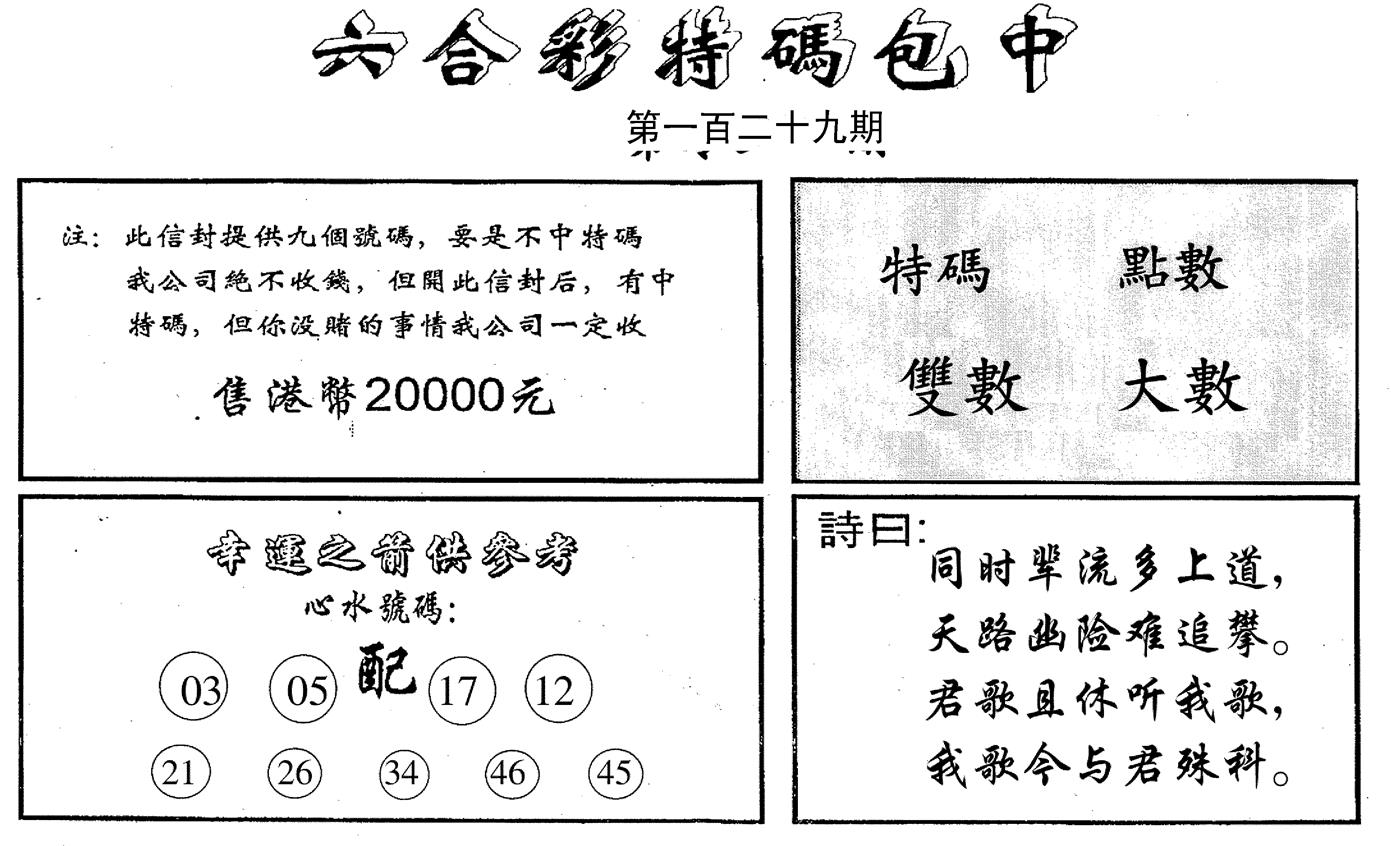 六合彩特碼包中
第一百二十九期
注：此信封提供九個號碼，要是不中特碼
我公司絕不收錢，但開此信封后，有中
特碼，但你没賭的事情我公司一定收
售港幣20000元
特碼 點數
雙數 大數
幸運之箭供參考
心水號碼：
03 05 配 17 12
21 26 34 46 45
詩曰：
同时辈流多上道，
天路幽险难追攀。
君歌且休听我歌，
我歌今与君殊科。